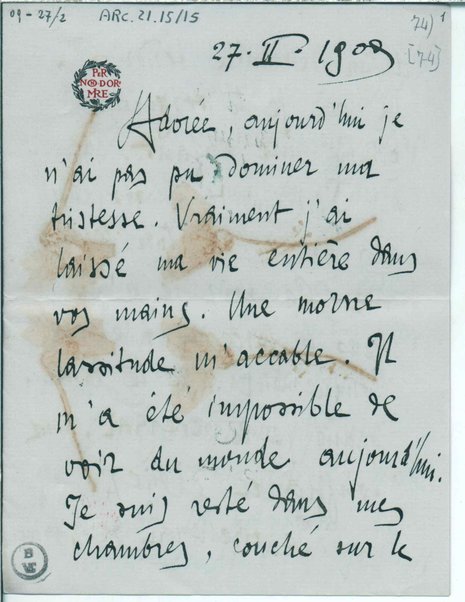 09-27/2 ARC.21.15/15 74) 1
[74]
27. II. 1909
PER
NON DOR
MIRE
Adorée, aujourd'hui je
n'ai pas pu dominer ma
tristesse. Vraiment j'ai
laissé ma vie entière dans
vos mains. Une morne
lassitude m'accable. Il
m'a été impossible de
voir du monde aujourd'hui.
Je suis resté dans mes
chambres, couché sur le